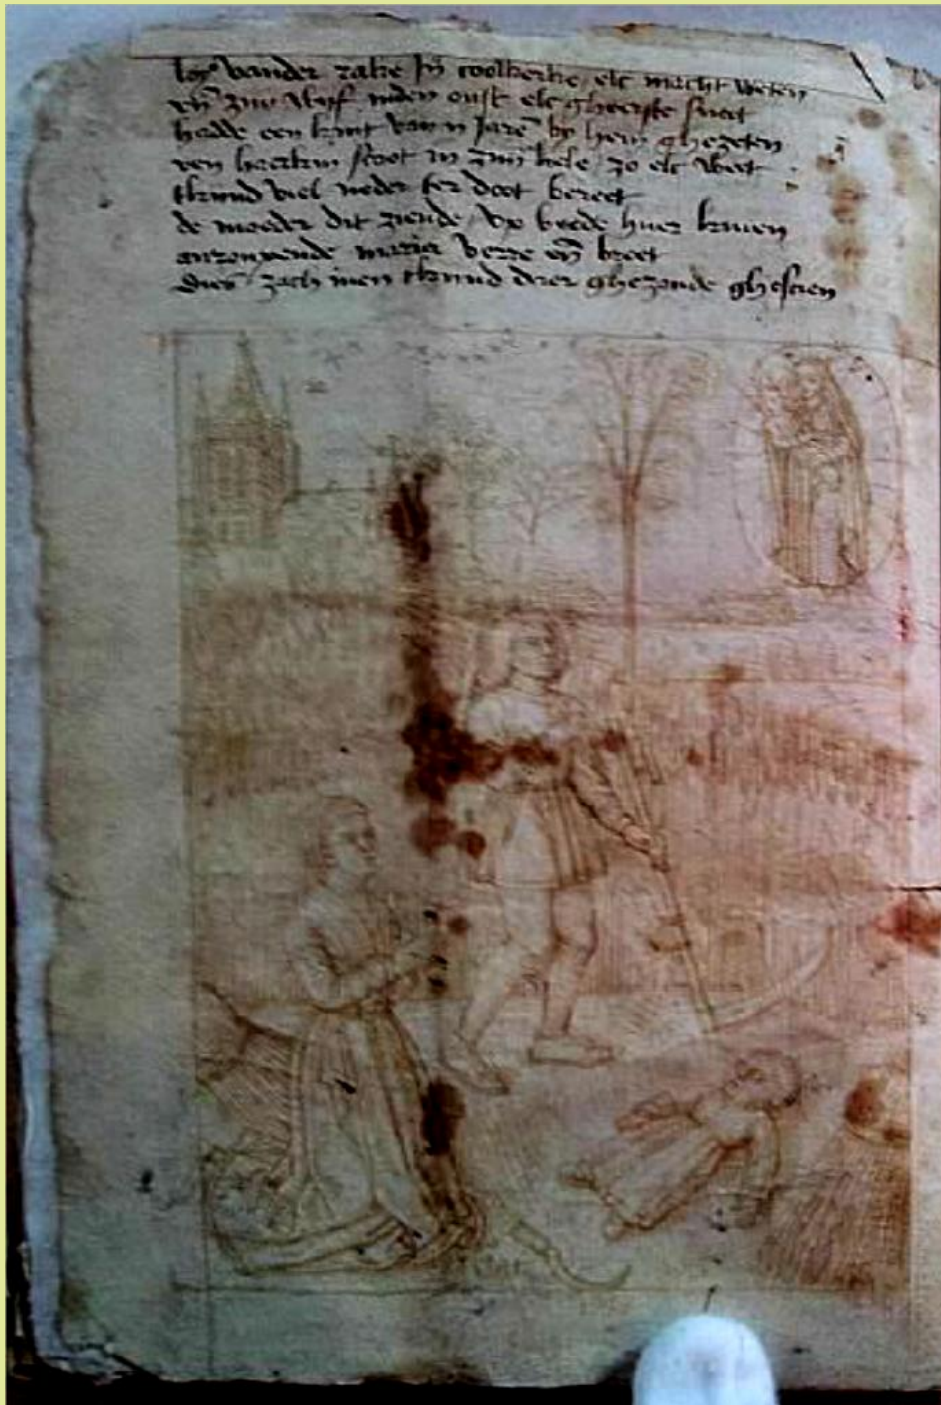 vander zake Jn coolkerke / elc macht weten
en zijn wijf inden oust elc gheerste sneet
hadde een kint van ii Jaren by hem ghezeten
een in zijn kele / zo elc weet
tkind viel neder ter doot bereet
de moeder dit ziende / up beede huer knien
Maria verre en breet
dies zach men tkind daer ghezonde ghescien